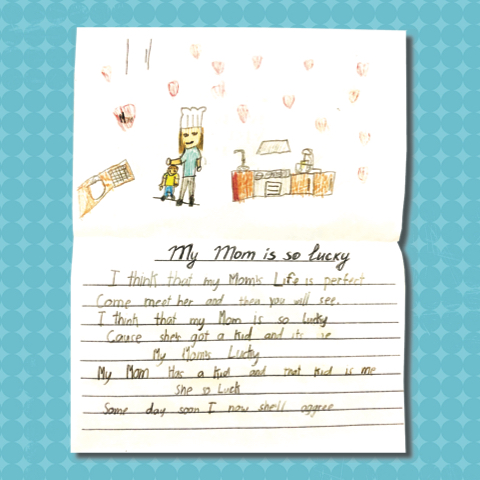 Mom
My Mom is so lucky
I think that my Mom's Life is perfect
Come meet her and then you will see.
I think that my Mom is so lucky
Cause she's got a kid and its
My Mom's Lucky
My Mom Has a kid and that kid is me
She so Luck
Some day soon I now she'll aggree